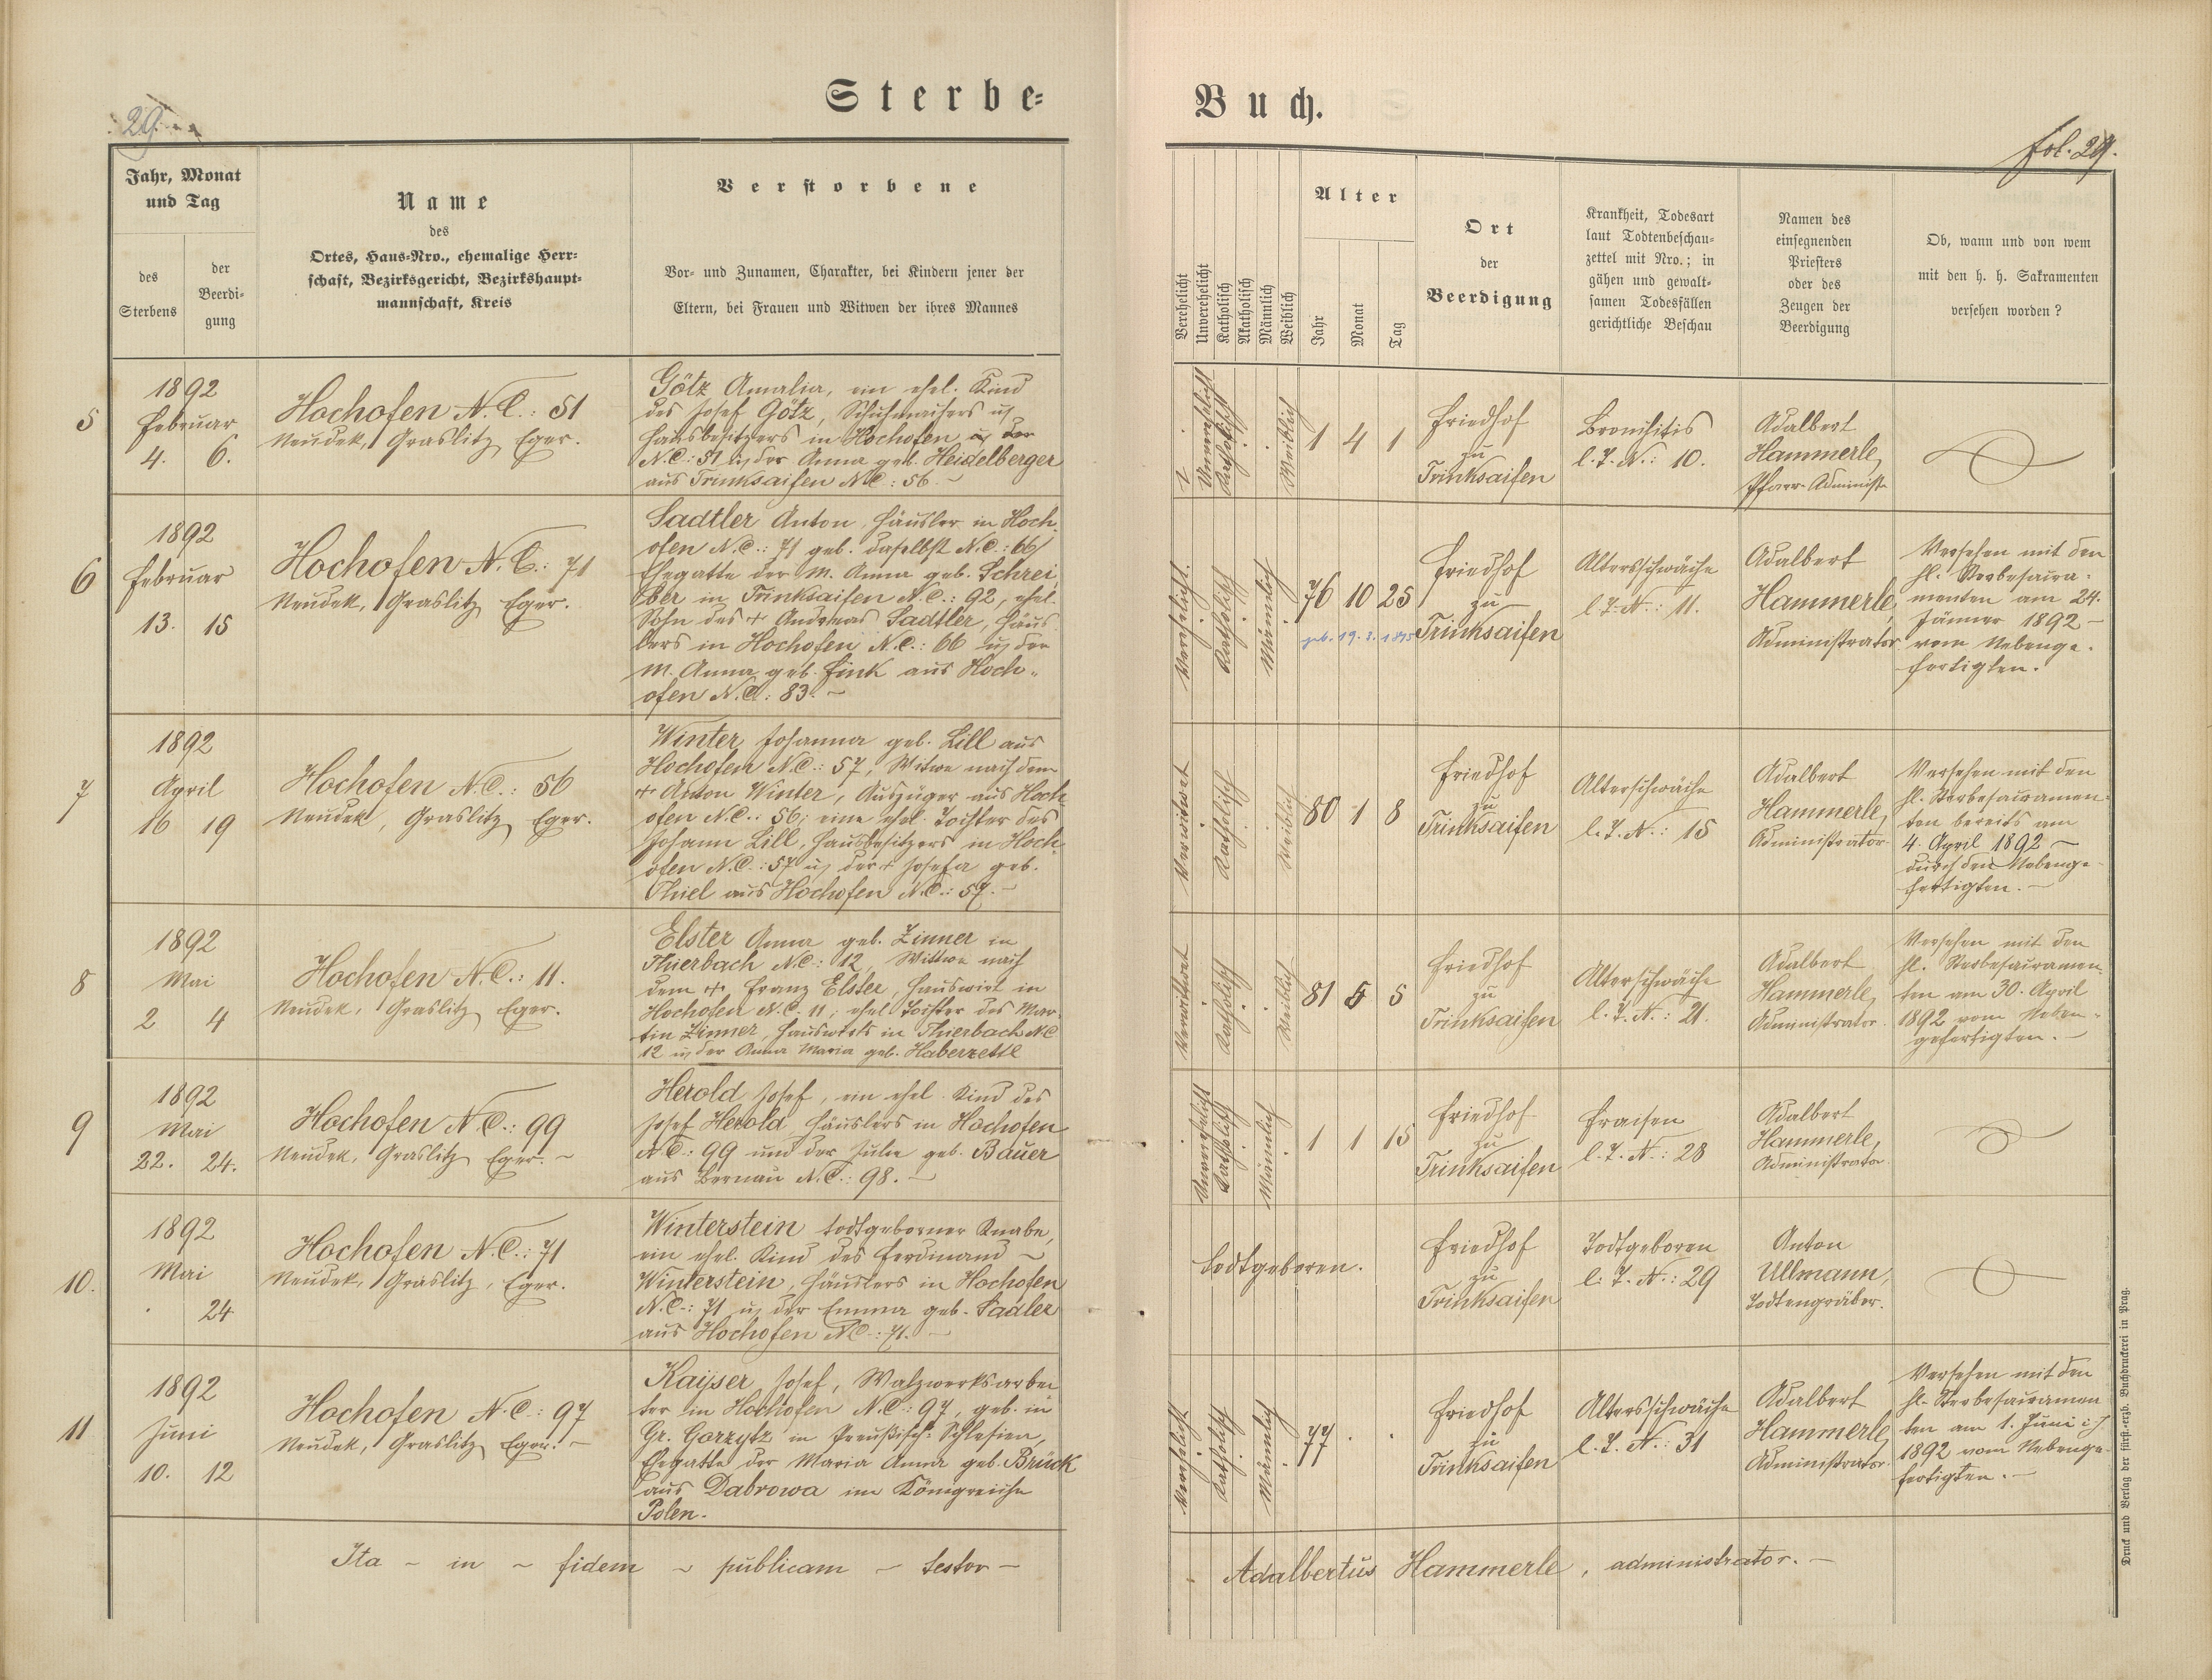 Sterbe-
Buch.
29.
fol. 29.
Jahr, Monat
und Tag
des
Sterbens
der
Beerdi-
gung
Name
des
Ortes, Haus-Nro., ehemalige Herr-
schaft, Bezirksgericht, Bezirkshaupt-
mannschaft, Kreis
Verstorbene
Vor- und Zunamen, Charakter, bei Kindern jener der
Eltern, bei Frauen und Witwen der ihres Mannes
Verehelicht
Unverehelicht
Katholisch
Akatholisch
Männlich
Weiblich
Alter
Jahr
Monat
Tag
Ort
der
Beerdigung
Krankheit, Todesart
laut Todtenbeschau-
zettel mit Nro.; in
gähen und gewalt-
samen Todesfällen
gerichtliche Beschau
Namen des
einsegnenden
Priesters
oder des
Zeugen der
Beerdigung
Ob, wann und von wem
mit den h. h. Sakramenten
versehen worden?
5
1892
Februar
4. 6.
Hochofen N.C.: 51
Neudek, Graslitz, Eger.
Götz Amalia, ein ehel. Kind
des Josef Götz, Schuhmachers u.
Hausbesitzers in Hochofen
N.C.: 51 u. der Anna geb. Heidelberger
aus Trinksaifen N.C.: 56. –
Unverehelicht
Katholisch
Weiblich
1 4 1
Friedhof
zu
Trinksaifen
Bronchitis
l. T. N.: 10.
Adalbert
Hammerle,
Pfarr-Administr.
6
1892
Februar
13. 15
Hochofen N.C.: 71
Neudek, Graslitz, Eger.
Sadtler Anton, Häusler in Hoch-
ofen N.C.: 71 geb. daselbst N.C.: 66
Ehegatte der M. Anna geb. Schrei-
ber in Trinksaifen N.C.: 92, ehel.
Sohn des + Andreas Sadtler, Häus-
lers in Hochofen N.C.: 66 u. der
M. Anna geb. Fink aus Hoch-
ofen N.C.: 83. –
Verehelicht.
Katholisch
Männlich
76 10 25
geb. 19. 3. 1815
Friedhof
zu
Trinksaifen
Altersschwäche
l. T. N.: 11.
Adalbert
Hammerle,
Administrator
Versehen mit den
hl. Sterbesacra-
menten am 24.
Jänner 1892 –
vom Nebenge-
fertigten.
7
1892
April
16 19
Hochofen N.C.: 56
Neudek, Graslitz, Eger.
Winter Johanna geb. Lill aus
Hochofen N.C.: 57, Witwe nach dem
+ Anton Winter, Auszüger aus Hoch-
ofen N.C.: 56; eine ehel. Tochter des
Johann Lill, Hausbesitzers in Hoch-
ofen N.C.: 57 u. der + Josefa geb.
Thiel aus Hochofen N.C.: 57. –
Verwitwet
Katholisch
Weiblich
80 1 8
Friedhof
zu
Trinksaifen
Alterschwäche
l. T. N.: 15
Adalbert
Hammerle,
Administrator
Versehen mit den
hl. Sterbesacramen-
ten bereits am
4. April 1892 –
durch den Nebenge-
fertigten. –
8
1892
Mai
2 4
Hochofen N.C.: 11.
Neudek, Graslitz, Eger.
Elster Anna geb. Zinner in
Thierbach N.C.: 12, Wittwe nach
dem + Franz Elster, Hauswirt in
Hochofen N.C. 11; ehel. Tochter des Mar-
tin Zinner, Hauswirts in Thierbach N.C
12 u. der Anna Maria geb. Haberzettl
Verwittwet
Katholisch
Weiblich
81 5 5
Friedhof
zu
Trinksaifen
Alterschwäche
l. T. N.: 21.
Adalbert
Hammerle,
Administrator.
Versehen mit den
hl. Sterbesacramen-
ten am 30. April
1892 vom Neben-
gefertigten. –
9
1892
Mai
22. 24.
Hochofen N.C.: 99
Neudek, Graslitz, Eger. –
Herold Josef, ein ehel. Kind des
Josef Herold, Häuslers in Hochofen
N.C.: 99 und der Julie geb. Bauer
aus Bernau N.C.: 98. –
Unverehelicht
Katholisch
Männlich
1 1 15
Friedhof
zu
Trinksaifen
Fraisen
l. T. N.: 28
Adalbert
Hammerle,
Administrator
10.
1892
Mai
24
Hochofen N.C.: 71
Neudek, Graslitz, Eger.
Winterstein todtgeborner Knabe,
ein ehel. Kind des Ferdinand –
Winterstein, Häuslers in Hochofen
N.C.: 71 u. der Emma geb. Sadler
aus Hochofen N.C.: 71. –
todtgeboren.
Friedhof
zu
Trinksaifen
Todtgeboren
l. T. N.: 29
Anton
Ullmann,
Todtengräber.
11
1892
Juni
10. 12
Hochofen N.C.: 97
Neudek, Graslitz, Eger. –
Kayser Josef, Walzwerksarbei-
ter in Hochofen N.C.: 97, geb. in
Gr. Gorzytz in Preußisch-Schlesien,
Ehegatte der Maria Anna geb. Brück
aus Dabrowa im Königreiche
Polen.
Verehelicht
Katholisch
Männlich
77 . .
Friedhof
zu
Trinksaifen
Altersschwäche
l. T. N.: 31
Adalbert
Hammerle,
Administrator.
Versehen mit den
hl. Sterbesacramen
ten am 1. Juni
1892 vom Nebenge-
fertigten. –
Ita – in – fidem – publicam – testor –
Adalbertus Hammerle, administrator. –
Druck und Verlag der fürst-erzb. Buchdruckerei in Prag.